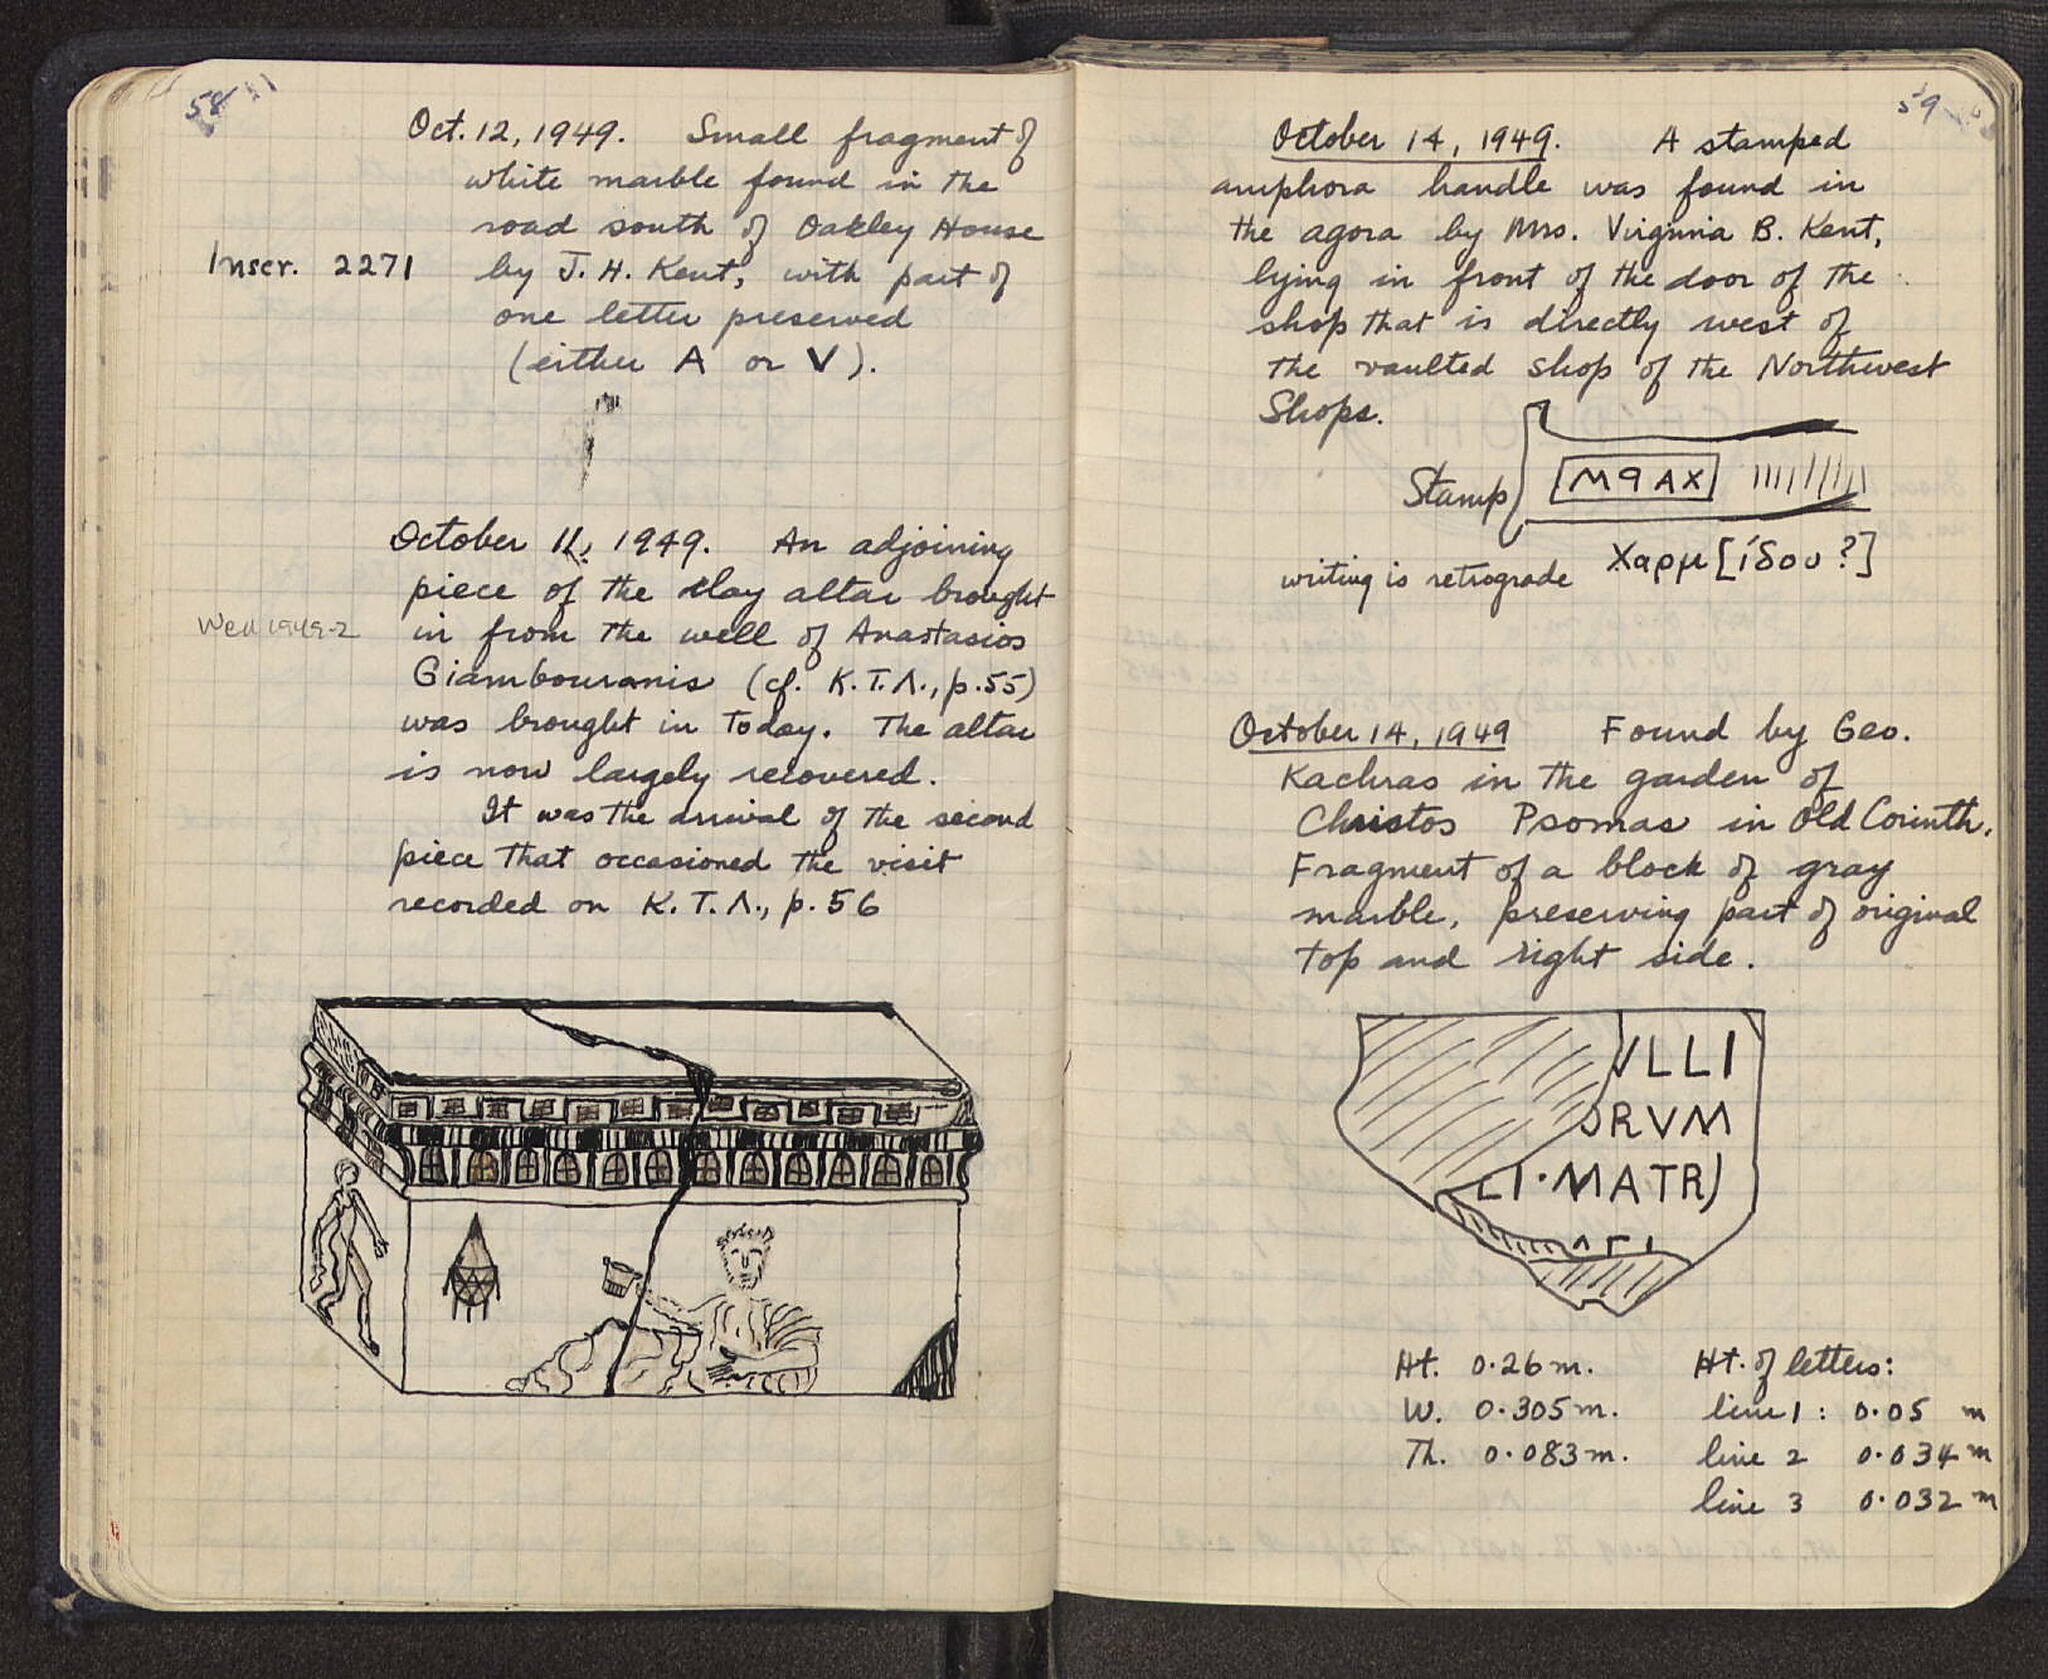 58
Oct. 12, 1949. Small fragment of
white marble found in the
road south of Oakley House
Inscr. 2271 by J. H. Kent, with part of
one letter preserved
(either A or V).
October 11, 1949. An adjoining
piece of the clay altar brought
Well 1949-2 in from the well of Anastasios
Giambouranis (cf. K.T.Λ., p.55)
was brought in today. The altar
is now largely recovered.
It was the arrival of the second
piece that occasioned the visit
recorded on K.T.Λ., p. 56
59
October 14, 1949. A stamped
amphora handle was found in
the agora by Mrs. Virginia B. Kent,
lying in front of the door of the
shop that is directly west of
the vaulted shop of the Northwest
Shops.
Stamp MꟼAX
writing is retrograde Χαρμ[ίδου?]
October 14, 1949 Found by Geo.
Kachras in the garden of
Christos Psomas in Old Corinth.
Fragment of a block of gray
marble, preserving part of original
top and right side.
VLLI
ORVM
LI·MATRI
Ht. 0.26 m. Ht. of letters:
W. 0.305 m. line 1: 0.05 m
Th. 0.083 m. line 2 0.034 m
line 3 0.032 m